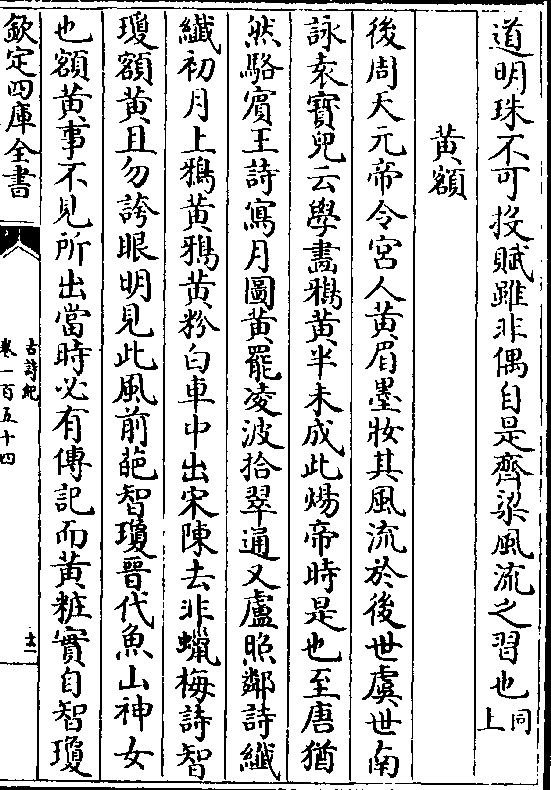 道明珠不可投賦雖非偶自是齊梁風流之習也同上
黄額
後周天元帝令宫人黄眉墨妝其風流於後世虞世南
詠袁寶兒云學畫鴉黄半未成此煬帝時是也至唐猶
然駱賔王詩寫月圖黄罷凌波拾翠通又盧照鄰詩纖
纖初月上鴉黄鴉黄粉白車中出宋陳去非蠟梅詩智
瓊額黄且勿誇眼明見此風前葩智瓊晉代魚山神女
也額黄事不見所出當時必有傳記而黄粧實自智瓊
欽定四庫全書
古詩紀
卷一百五十四
十二